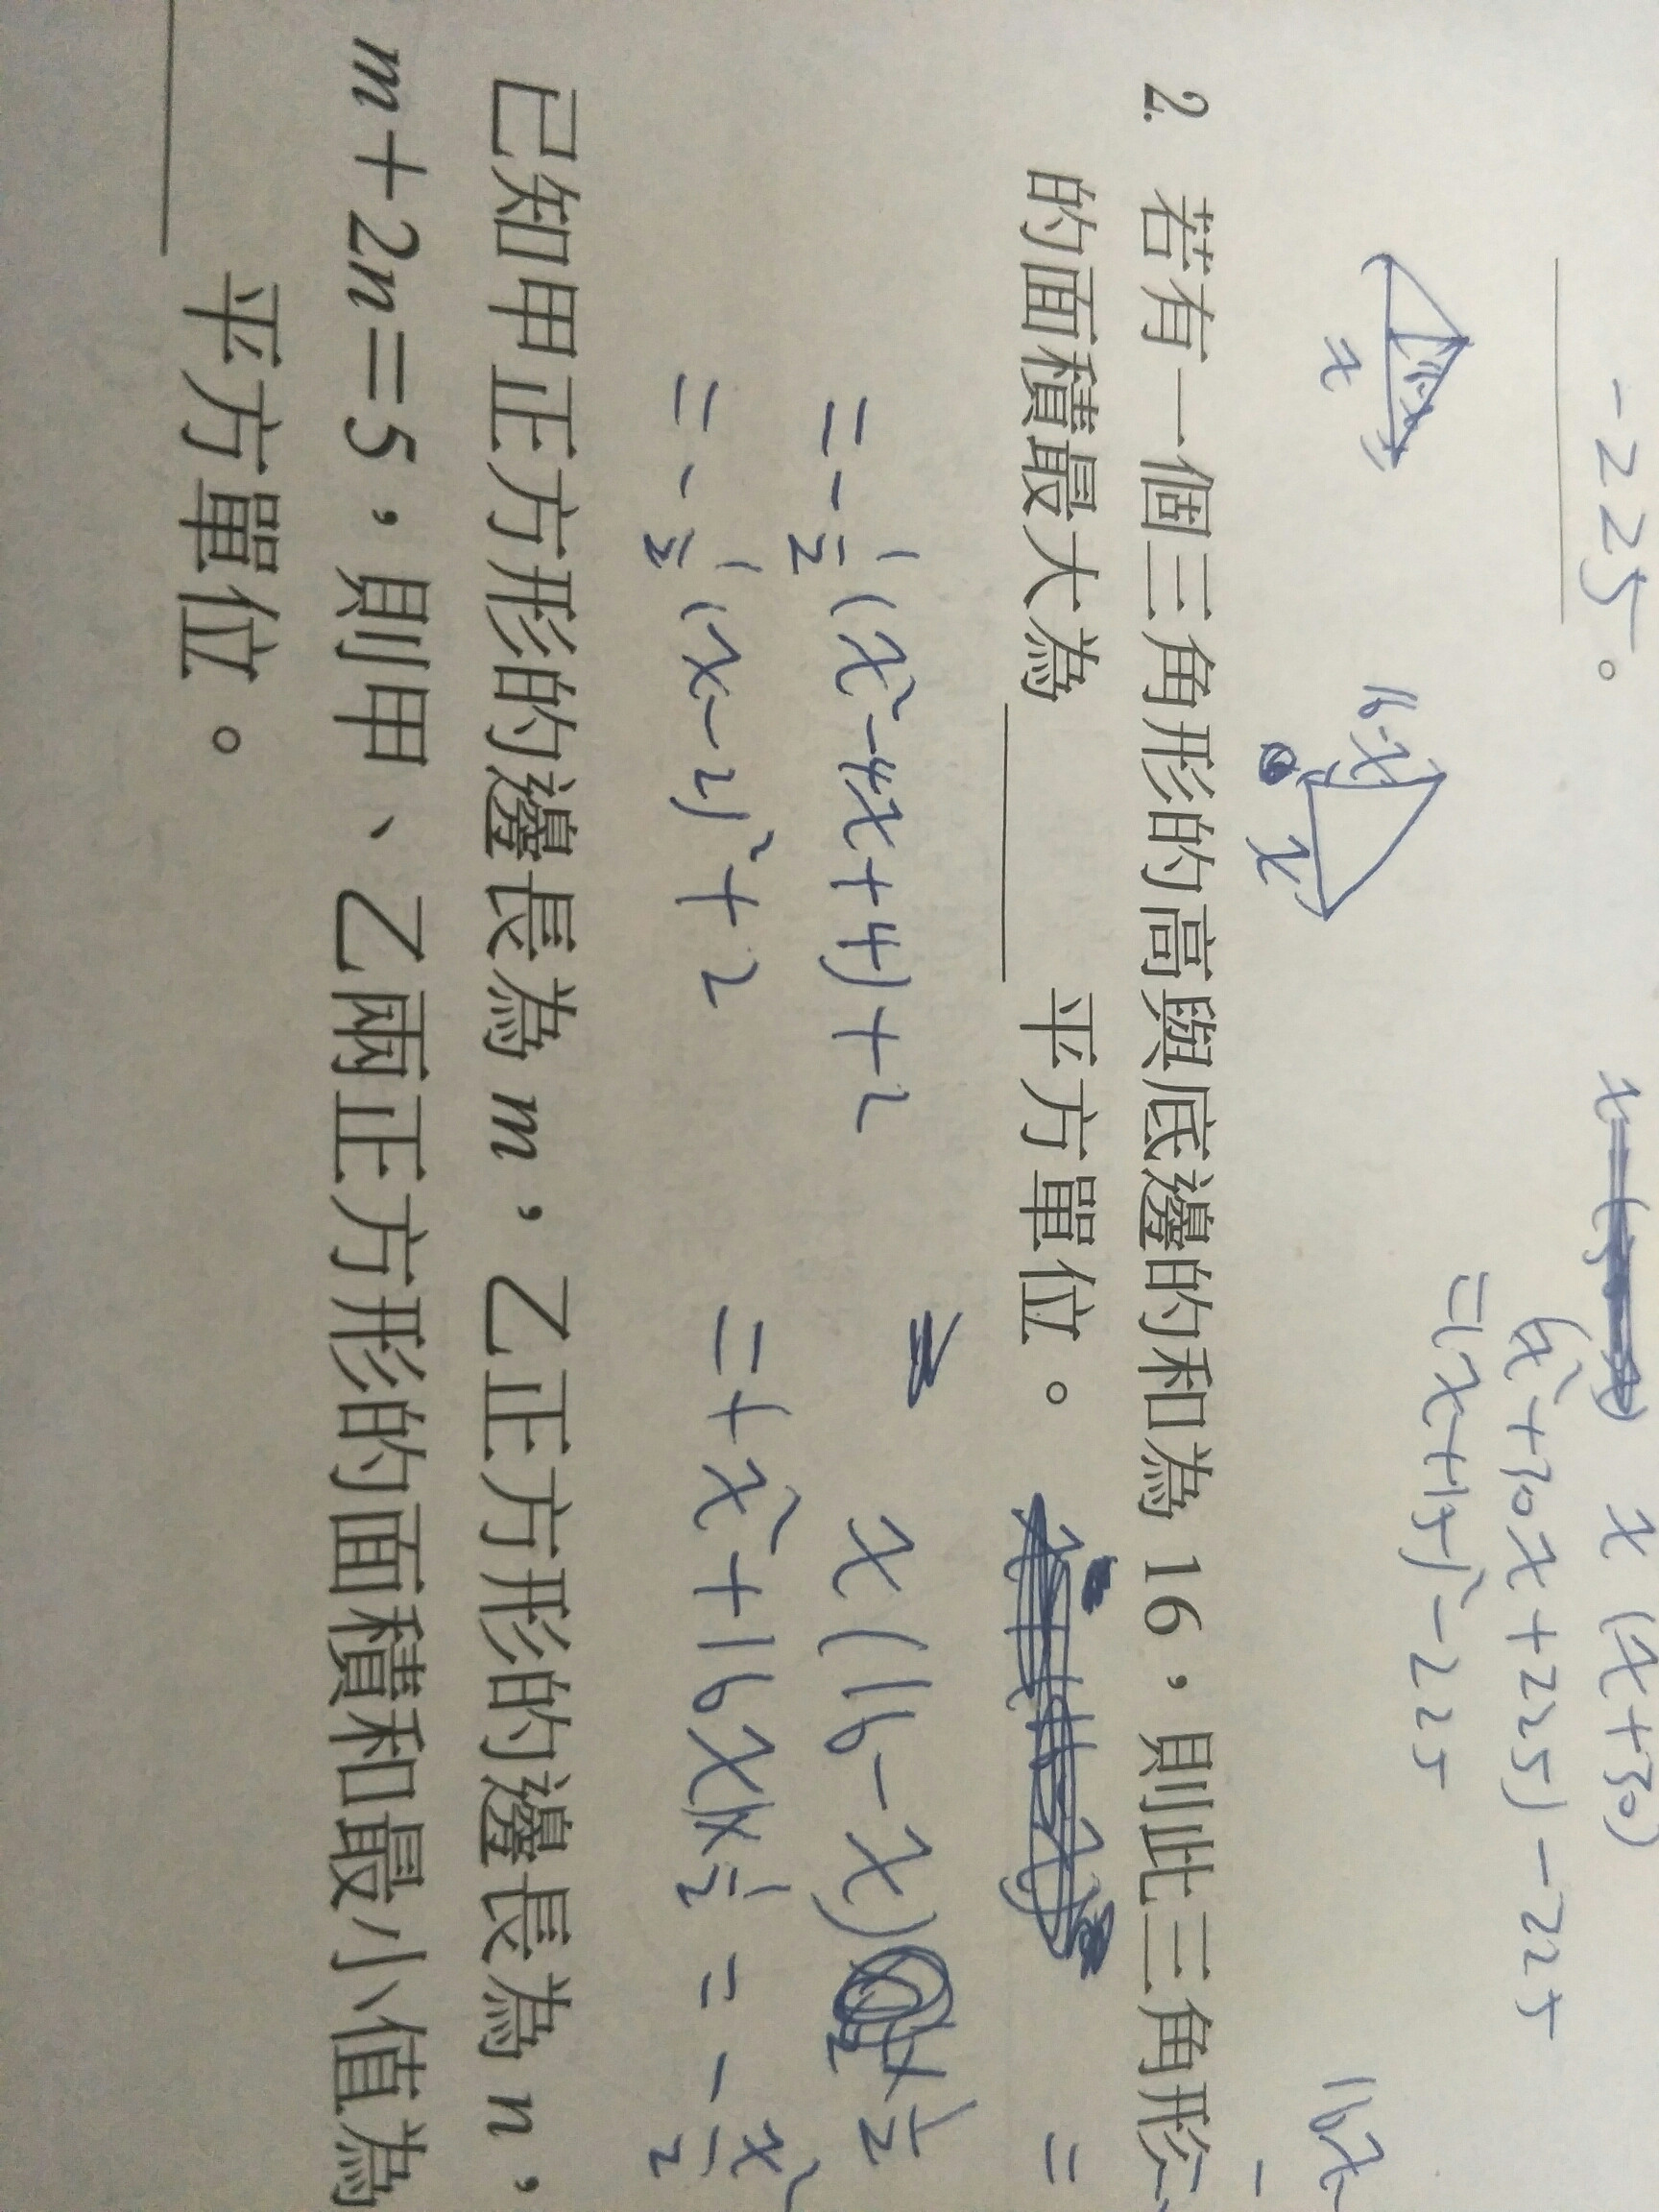 -225。
x (x+30)
(x²+30x+225)-225
=(x+15)²-225
x
16-x
x
16x
2. 若有一個三角形的高與底邊的和為 16,則此三角形
的面積最大為______平方單位。
=
x(16-x)×1/2
=-1/2(x²-4x+4)+2
=(-x²+16x)×1/2=-x²/2
=-1/2(x-2)²+2
已知甲正方形的邊長為 m,乙正方形的邊長為 n,
m+2n=5,則甲、乙兩正方形的面積和最小值為
______平方單位。